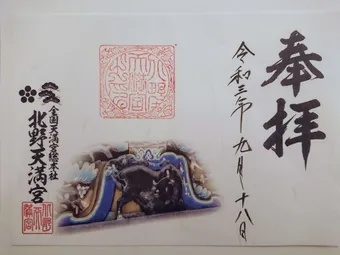 奉拝
令和三年九月十八日
全国天満宮総本社
北野天満宮